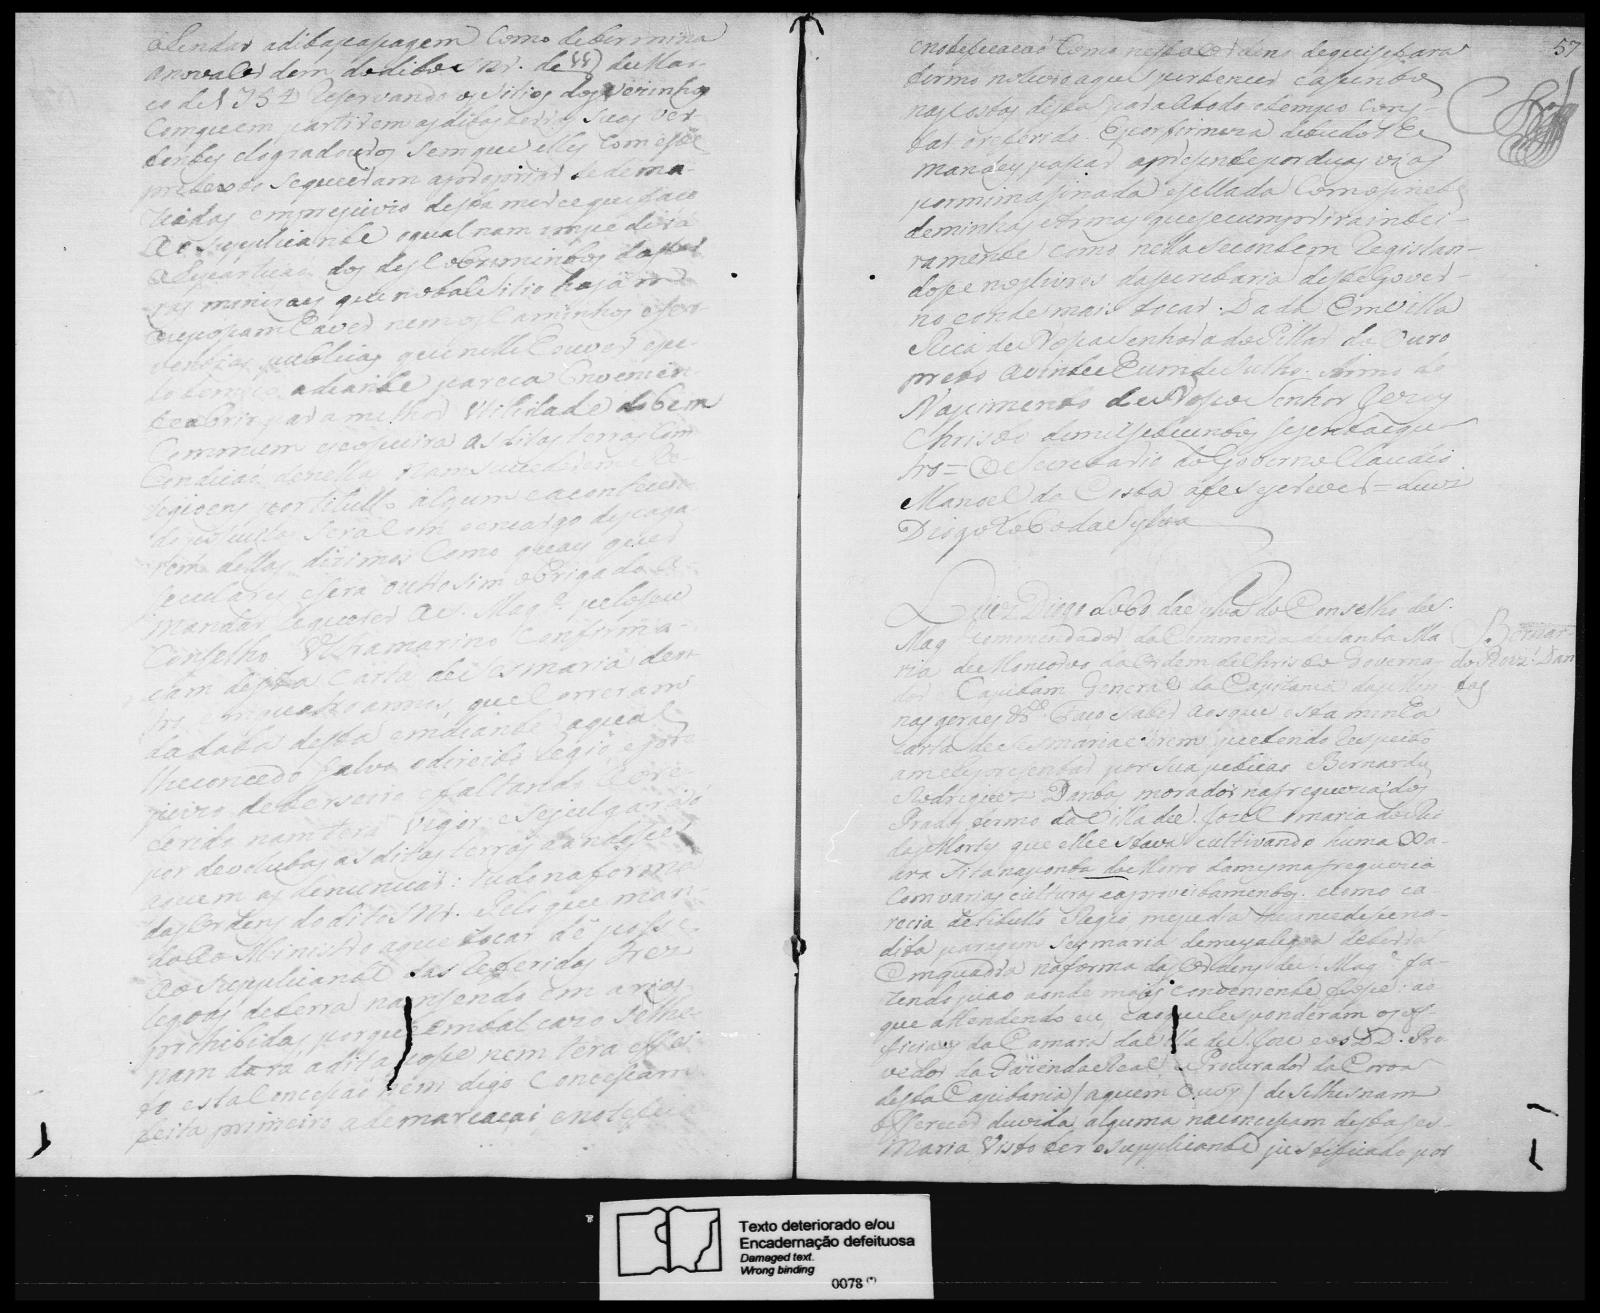 alendar aditapapagem Como determina
anovaordem doditos Snr. de 11 de Mar-
ço de 1754 Reservando os sitios dos vezinhos
Comquem partirem asditas terras, suas ver-
tentes elogradouros semque elles Comeste
pretexto sequeiram apropriar de dema-
ziadas emprejuizo desta merce que faço
Ao Supplicante oqual nam impedirá
a repartiçaõ dos descobrimentos das ter-
ras mineraes que notal Sitio hajam
ou possam haver nem os Caminhos e ser-
ventias publicas que nelle houver e pe-
lo tempo adiante pareça Conveniẽn-
te abrir para melhor Utilidade do bem
Commum epossuira as ditas terras Com
Condiçaõ denellas nam sucederem Re-
ligioens por titullo algum e acontecen-
do possuillas será Com oencargo depaga-
rem dellas dizimos Como quaes quer
seculares e sera outrosim obrigado a
mandar requerer A S. Mag.e pelo seu
Conselho Ultramarino Confirma-
çam desta Carta de sesmaria den-
tro emquatro annos, que Correram
da data desta emdiante aqual
lhe concedo salvo o direito Regio, e pre-
juizo deterceiro e faltando ao re-
ferido nam terá vigor, e se julgaraõ
por devolutas as ditas terras dandose
aquem as denunciar: tudo na forma
das Ordens do dito Snr. Pelo que man-
do ao Ministro aque tocar dê posse
Ao Supplicante das referidas tres
legoas de terra namsendo em areas
prohibidas porque emtal cazo selhe
nam dara adita posse nem tera effei-
to esta Concessaõ bem digo Concessam
feita primeiro a demarcaçaõ enotefi

57
enoteficaçaõ Como nesta Ordeno dequesefara
termo no livro aque pertencer e asento
nas costas desta para atodo otempo cons-
tar o referido. E por firmeza detudo lhe
mandey pasar aprezente por duas vias
por mim asinada e sellada Com osinete
deminhas Armas que se cumprirá intei-
ramente como nella se contem Registan-
dose nos livros da secretaria deste Gover-
no e onde mais tocar. Dada Em Villa
Rica de Nosa Senhora do Pillar do Ouro
preto a vinte e hum de Julho. Anno do
Nascimento de Noso Senhor Jezus
Christo de mil setecentos sesenta equa-
tro = O Secretario do Governo Claudio
Manoel da Costa afes escrever = Luiz
Diogo Lobo da Sylva
Luiz Diogo Lobo da Sylva do Conselho de S.
Mag. Commendador da Commenda de Santa Ma
ria de Moncorvo da Ordem de Christo Governa-
dor e Capitam General da Capitania das Mi-
nas geraes &.ca Faço saber aos que esta minha
carta de Sesmaria virem que tendo respeito
ame reprezentar por sua petiçaõ Bernardo
Rodriguez Danta morador na freguezia dos
Prados termo da Villa de S. Joze Comarca do Rio
das Mortes que elle estava cultivando huma Pa-
ara Sita na ponta do Morro da mesma freguezia
Com varias culturas eaproveitamentos. e como ca-
recia de titullo Regio me pedia lhe concedese no-
dita paragem Sesmaria demeya legoa de terra
Em quadra na forma das Ordens de S. Mag.e fa-
zendo piaõ aonde mais conveniente fosse: ao
que attendendo eu, e ao que responderam os of-
ficiaes da Camara da Villa de S. Joze e os DD. Pro-
vedor da Fazenda Real e Procurador da Coroa
desta Capitania / aquem Ouvi / de selhes nam
Offerecer duvida alguma na concessam desta Ses-
maria Visto ter o supplicante justificado por
Bernar-
do Roiz Dan
tas
Texto deteriorado e/ou
Encadernação defeituosa
Damaged text.
Wrong binding
0078 (*)